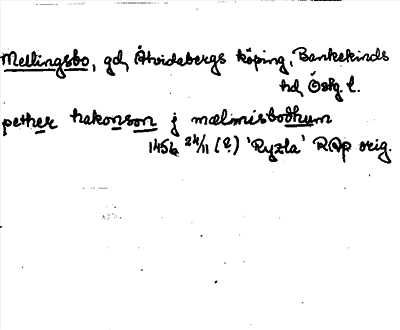 Mellingsbo, gd, Åtvidabergs köping, Bankekinds
hd, Östg. l.
pether hakonson j mælmisbodhum
1456 24/11 (?) 'Ryzla' RAp orig.